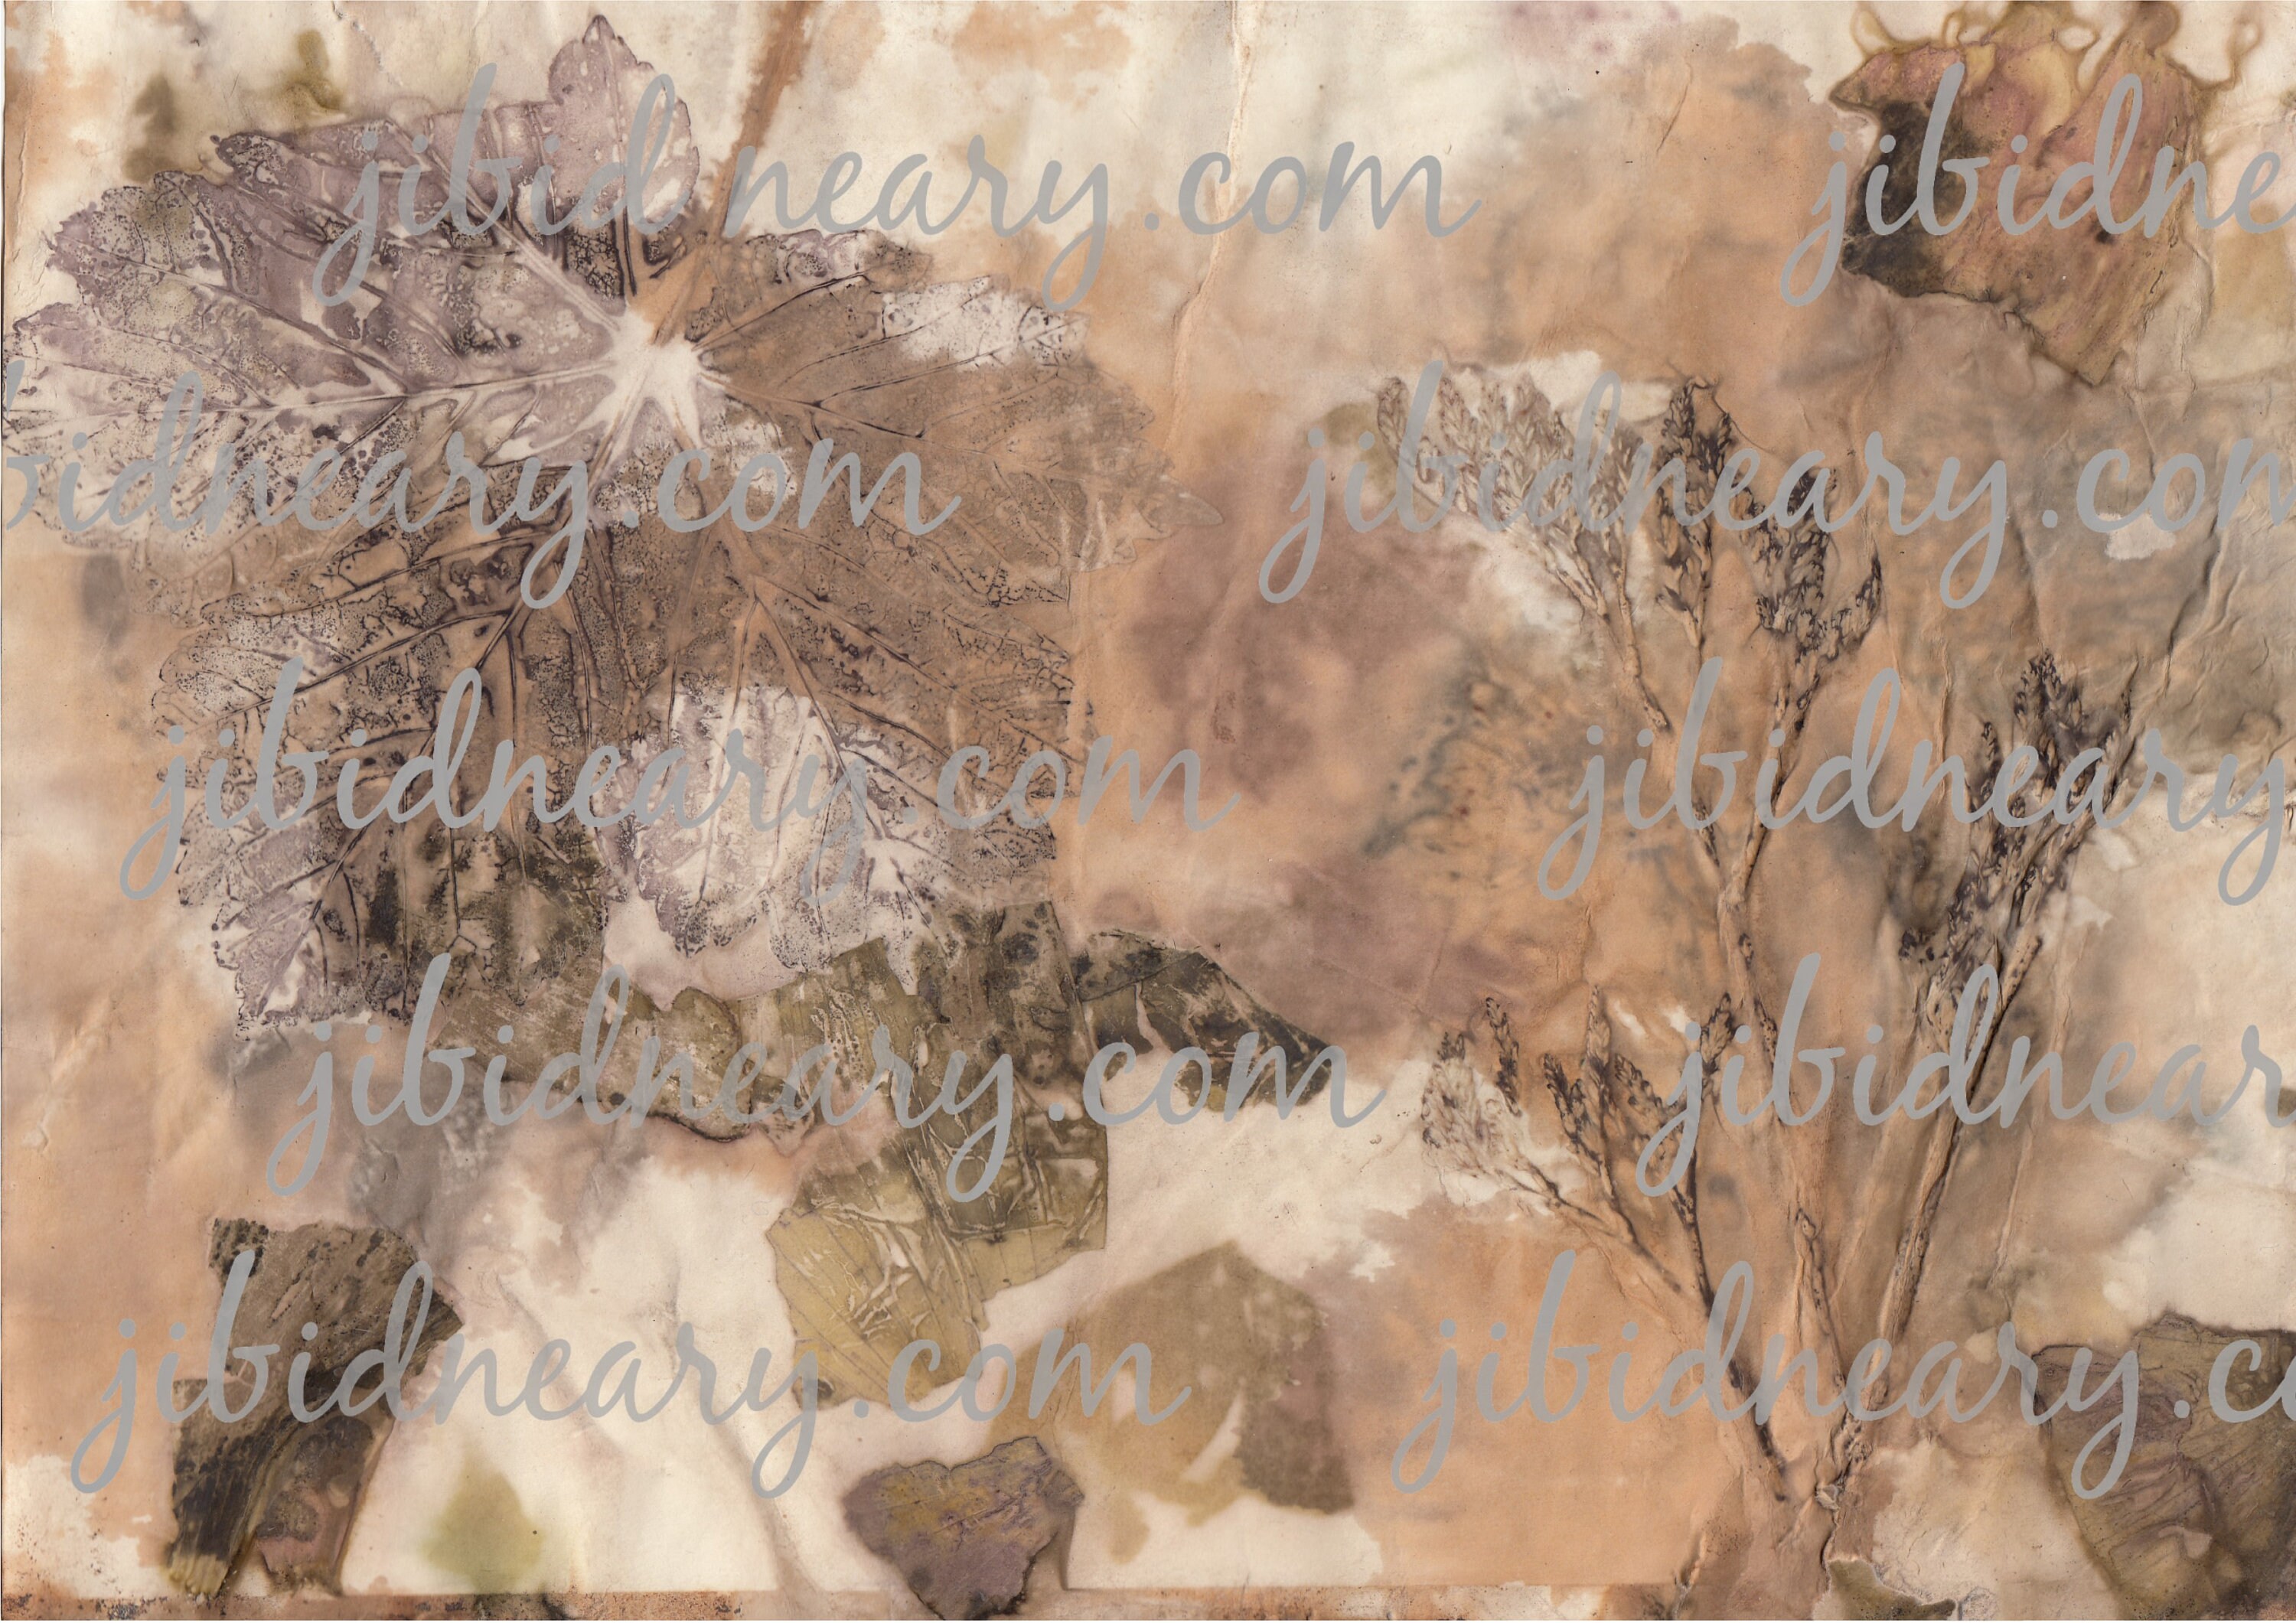 jibid neary.com jibidne
bidneary.com jibidneary.com
jibidneary.com jibidneary
jibidneary.com jibidnear
jibidneary.com jibidneary.c